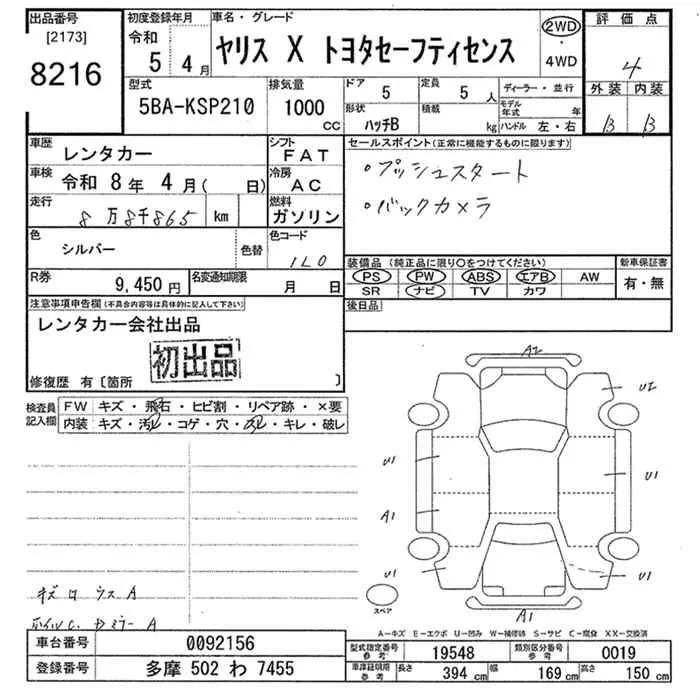 出品番号
[2173]
8216
初度登録年月
令和
5 4月
車名・グレード
ヤリス X トヨタセーフティセンス
2WD
・
4WD
評価点
4
外装 内装
B B
型式
5BA-KSP210
排気量
1000
CC
ドア 5
形状 ハッチB
定員 5人
積載 kg
ディーラー・並行
モデル年式 年
ハンドル 左・右
車歴 レンタカー
シフト FAT
車検 令和 8年 4月( 日)
冷房 AC
走行 8万8千865 km
燃料 ガソリン
色 シルバー 色替
色コード 1L0
R券 9,450円
名変通知期限 月 日
セールスポイント(正常に機能するものに限ります)
・プッシュスタート
・バックカメラ
装備品(純正品に限り○をつけてください)
PS PW ABS エアB AW
SR ナビ TV カワ
新車保証書
有・無
後日品
注意事項申告欄(不具合内容等は具体的に記入して下さい)
レンタカー会社出品
初出品
修復歴 有〔箇所 〕
検査員記入欄
FW キズ・飛石・ヒビ割・リペア跡・×要
内装 キズ・汚レ・コゲ・穴・スレ・キレ・破レ
A2
U2
U1
U1
A1
U1
U1
A1
スペア
キズ ロ ウス A
ホイルC. ドミラー A
A−キズ E−エクボ U−凹み W−補修跡 S−サビ C−腐食 XX−交換済
車台番号 0092156
登録番号 多摩 502 わ 7455
型式指定番号参考 19548
類別区分番号参考 0019
車庫証明用参考 長さ 394cm 幅 169cm 高さ 150cm